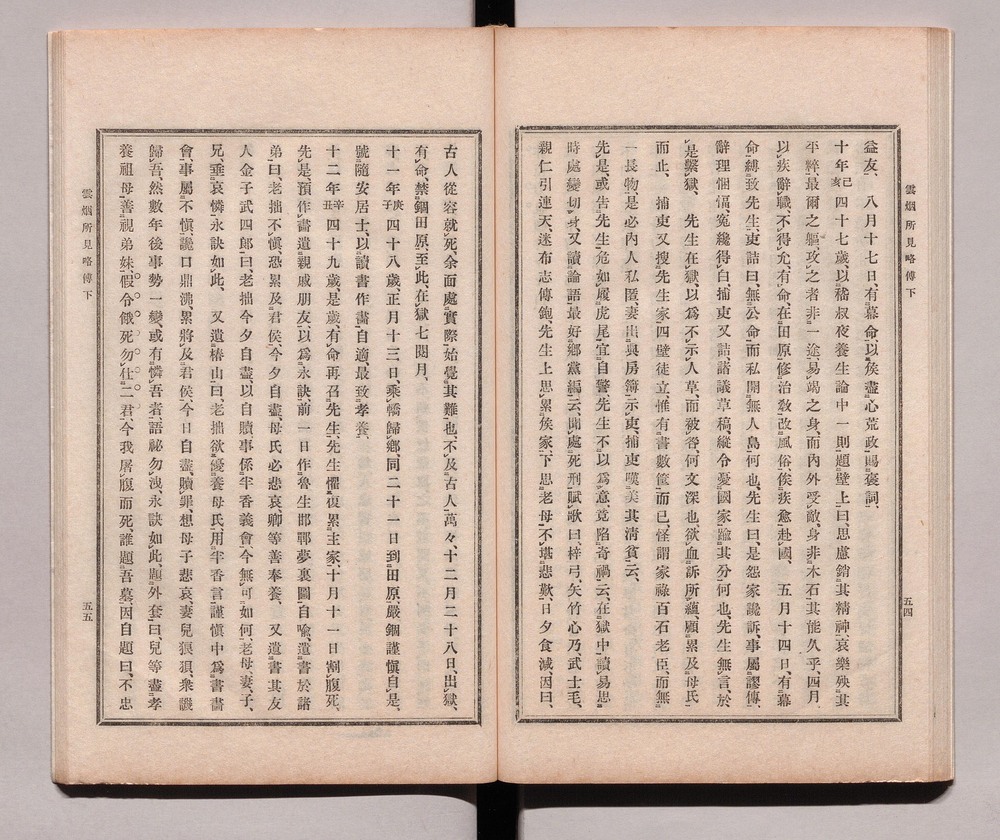 雲烟所見略傳下
五四
益友、八月十七日、有幕命、以侯盡心荒政、賜褒詞、
十年己亥四十七歲、以嵇叔夜養生論中一則、題壁上曰、思慮銷其精神、哀樂殃其
平粹、最爾之軀、攻之者非一途、易竭之身、而內外受敵、身非木石、其能久乎、四月、
以疾辭職、不得允、有命、在田原、修治敎、改風俗、侯疾愈赴國、五月十四日、有幕
命、縛致先生、吏詰曰、無公命而私開無人島何也、先生曰、是怨家讒訴、事屬謬傳、
辭理悃愊、冤纔得白、捕吏又詰、諮議草稿、縱令憂國家、踰其分何也、先生無言、於
是繫獄、先生在獄、以為不示人草、而被咎、何文深也、欲血訴所蘊、顧累及母氏
而止、捕吏又搜先生家、四壁徒立、惟有書數篋而已、怪謂家祿百石老臣、而無
一長物、是必內人私匿、妻出與房簿示吏、捕吏嘆美其淸貧云、
先是或吿先生、危如履虎尾、宜自警、先生不以為意、竟陷奇禍云、在獄中、讀易思
時處變切身、又讀論語、最好鄕黨編云、聞處死刑、賦歌曰、梓弓、矢竹心乃、武士毛、
親仁引連天、迷布志傳飽、先生上思累侯家、下思老母、不堪悲歎、日夕食減、因曰、
古人從容就死、余面處實際、始覺其難也、不及古人萬々、十二月二十八日、出獄、
有命、禁錮田原、至此、在獄七閱月、
十一年庚子四十八歲、正月十三日、乘轎歸鄕、同二十一日到田原、嚴錮謹愼、自是、
號隨安居士、以讀書作畵自適、最致孝養、
十二年辛丑四十九歲、是歲、有命再召先生、先生懼復累主家、十月十一日割腹死、
先是預作書、遺親戚朋友、以為永訣、前一日作魯生邯鄲夢裏圖自喩、遺書於諸
弟曰、老拙不愼、恐累及君侯、今夕自盡、母氏必悲哀、卿等善奉養、又遺書其友
人金子武四郎曰、老拙今夕自盡、以自贖事係半香義會、今無可如何、老母妻子、
兄垂哀憐、永訣如此、又遺椿山曰、老拙欲優養母氏、用半香言、謹愼中為書畵
會、事屬不愼、讒口鼎沸、累將及君侯、今日自盡贖罪、想母子悲哀、妻兒狼狽、衆譏
歸吾、然數年後事勢一變、或有憐吾者、語祕勿洩、永訣如此、題外套曰、兒等盡孝
養祖母、善視弟妹、假令餓死、勿仕二君、今我屠腹而死、誰題吾墓、因自題曰、不忠
雲烟所見略傳下
五五